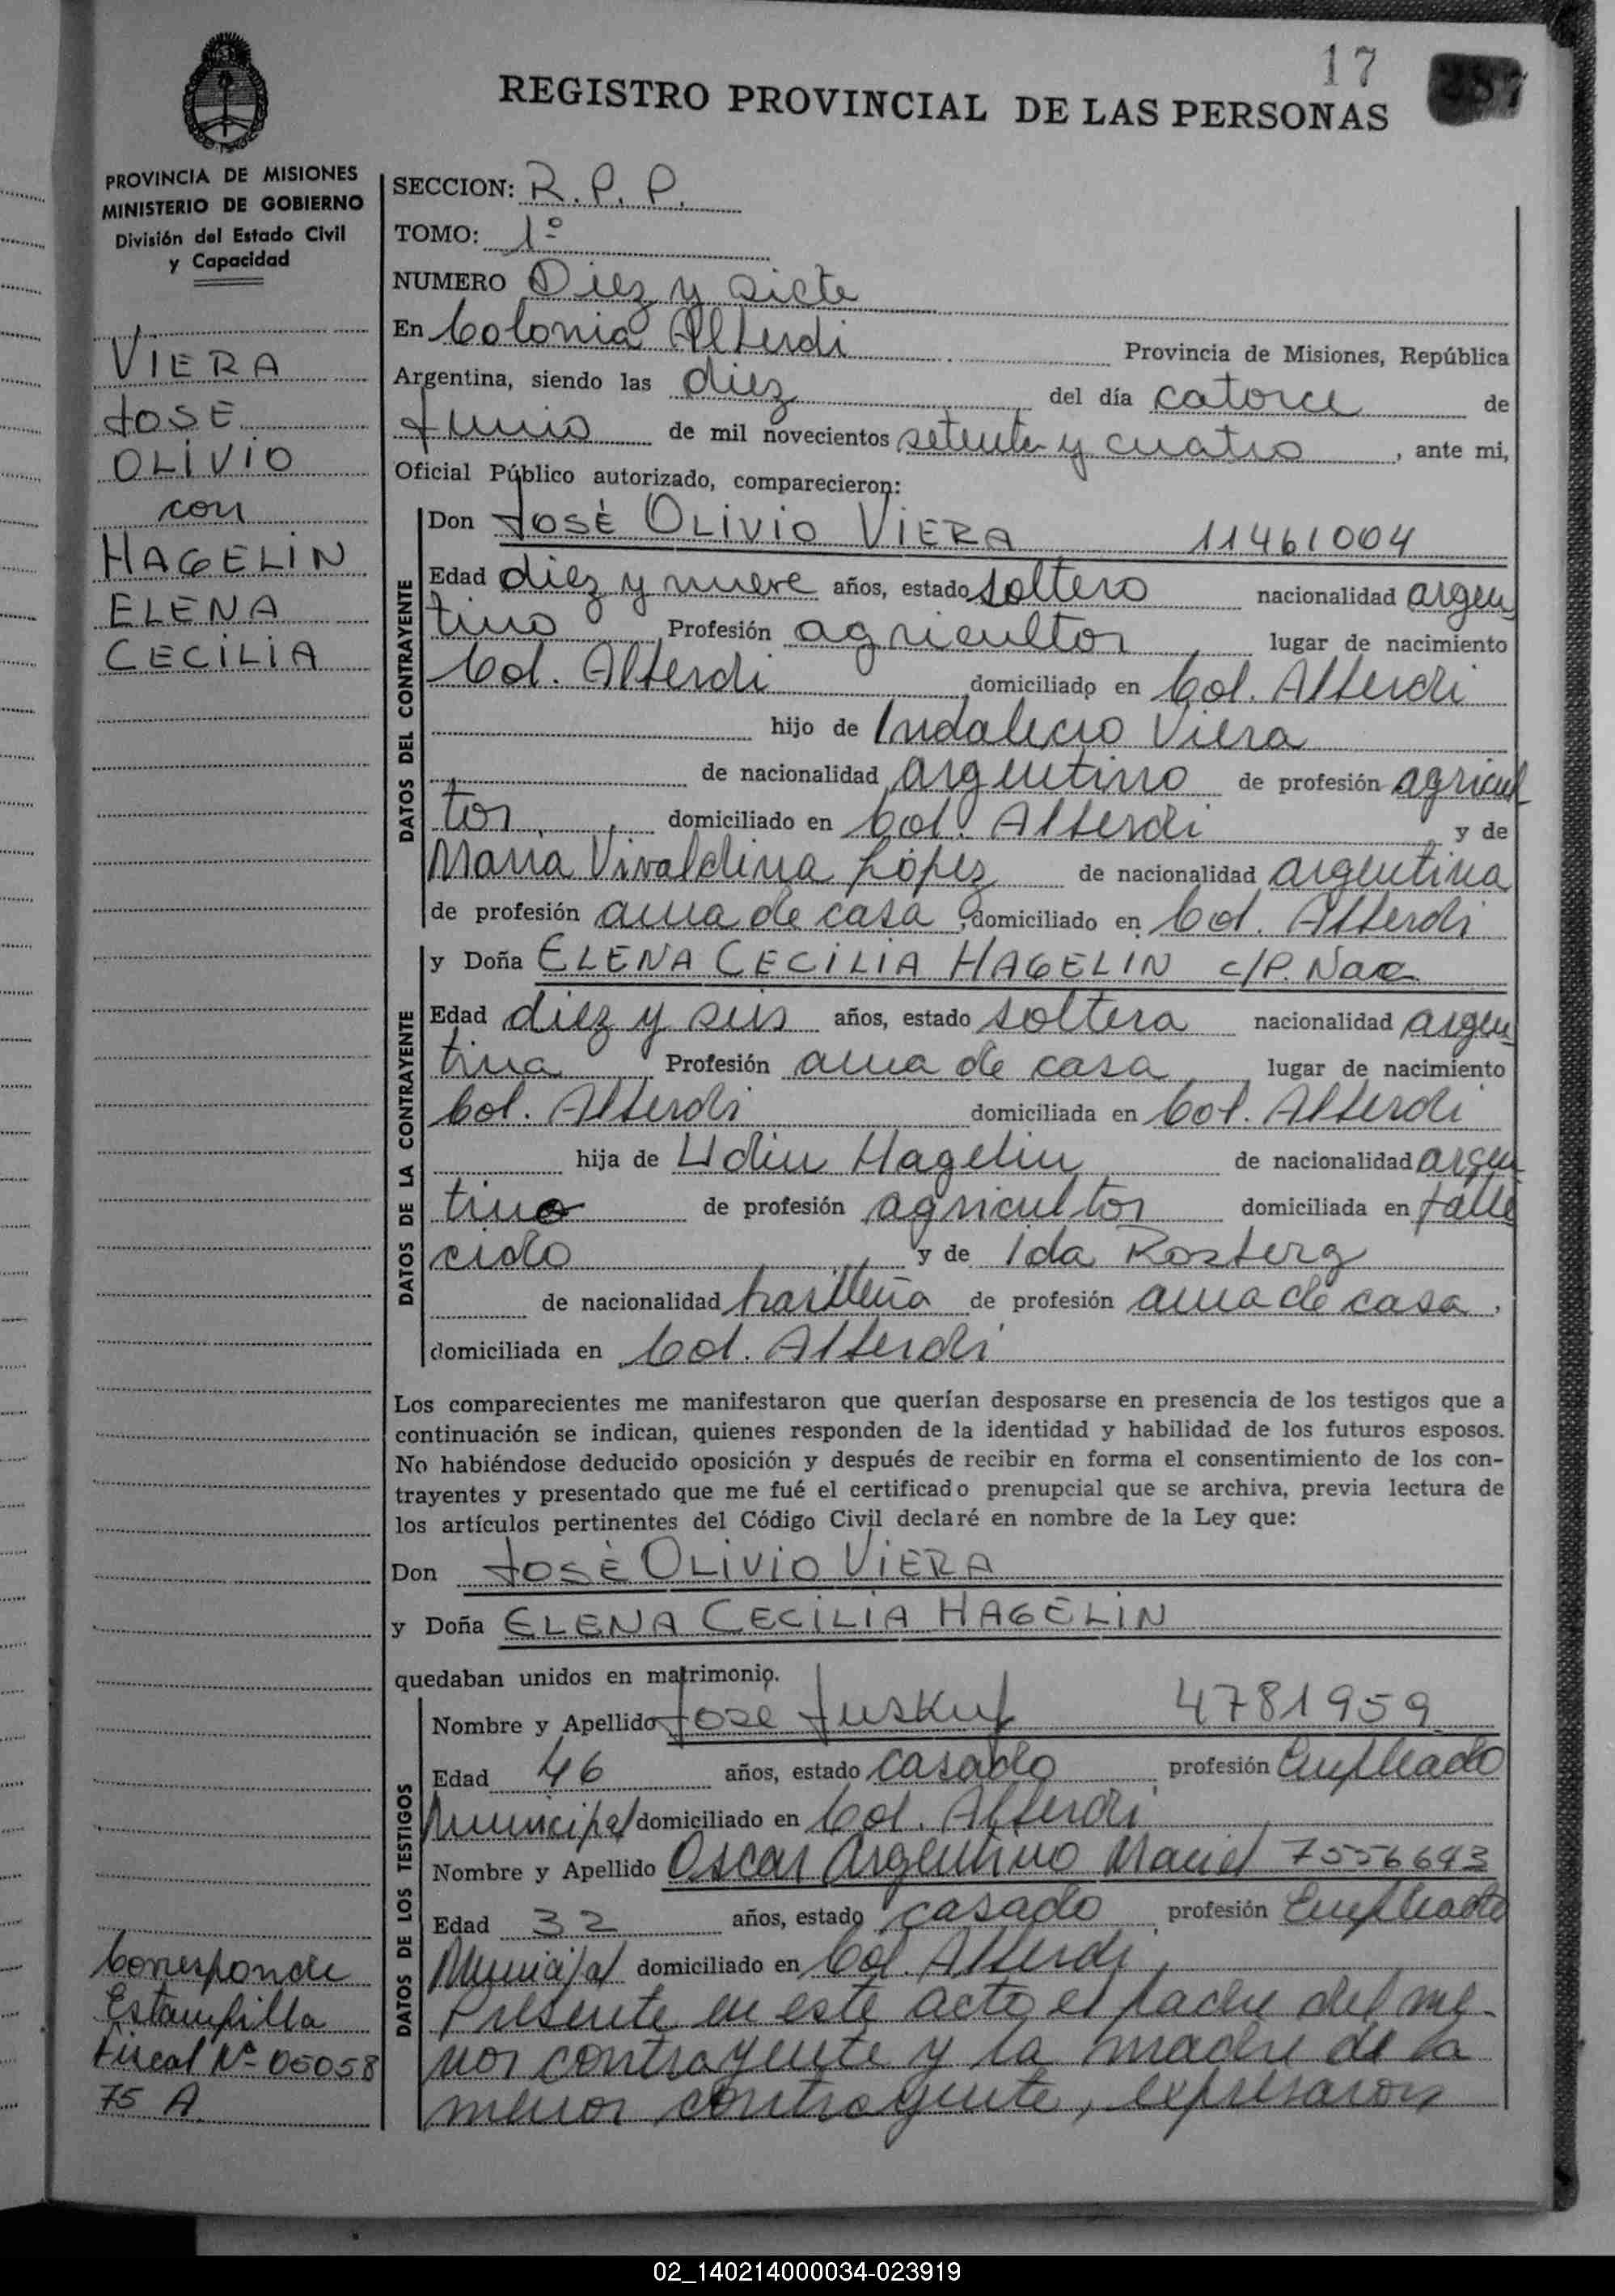 17
287
REGISTRO PROVINCIAL DE LAS PERSONAS
PROVINCIA DE MISIONES
MINISTERIO DE GOBIERNO
División del Estado Civil
y Capacidad
VIERA
JOSE
OLIVIO
con
HAGELIN
ELENA
CECILIA
Corresponde
Estampilla
Fiscal Nº 05058
75 A
SECCION: R. P. P.
TOMO: 1º
NUMERO Diez y siete
En Colonia Alberdi Provincia de Misiones, República
Argentina, siendo las diez del día catorce de
Junio de mil novecientos setenta y cuatro, ante mi,
Oficial Público autorizado, comparecieron:
DATOS DEL CONTRAYENTE
Don JOSÉ OLIVIO VIERA 11461004
Edad diez y nueve años, estado soltero nacionalidad argen
tino, Profesión agricultor, lugar de nacimiento
Col. Alberdi domiciliado en Col. Alberdi
hijo de Indalecio Viera
de nacionalidad argentino de profesión agricul
tor, domiciliado en Col. Alberdi y de
Maria Vivaldina López de nacionalidad argentina
de profesión ama de casa, domiciliado en Col. Alberdi
DATOS DE LA CONTRAYENTE
y Doña ELENA CECILIA HAGELIN c/P. Nac
Edad diez y seis años, estado soltera nacionalidad argen
tina, Profesión ama de casa lugar de nacimiento
Col. Alberdi domiciliada en Col. Alberdi
hija de Udin Hagelin de nacionalidad argen
tino de profesión agricultor domiciliada en falle
cido y de Ida Rosberg
de nacionalidad brasileña de profesión ama de casa,
domiciliada en Col. Alberdi
Los comparecientes me manifestaron que querían desposarse en presencia de los testigos que a
continuación se indican, quienes responden de la identidad y habilidad de los futuros esposos.
No habiéndose deducido oposición y después de recibir en forma el consentimiento de los con-
trayentes y presentado que me fué el certificado prenupcial que se archiva, previa lectura de
los artículos pertinentes del Código Civil declaré en nombre de la Ley que:
Don JOSÉ OLIVIO VIERA
y Doña ELENA CECILIA HAGELIN
quedaban unidos en matrimonio.
DATOS DE LOS TESTIGOS
Nombre y Apellido José 4781959
Edad 46 años, estado casado profesión Empleado
Municipal domiciliado en Col. Alberdi
Nombre y Apellido Oscar Argentino Maciel 7556693
Edad 32 años, estado casado profesión Empleado
Municipal domiciliado en Col. Alberdi
Presente en este acto el padre del me-
nor contrayente y la madre de la
menor contrayente, expresaron
02_140214000034-023919